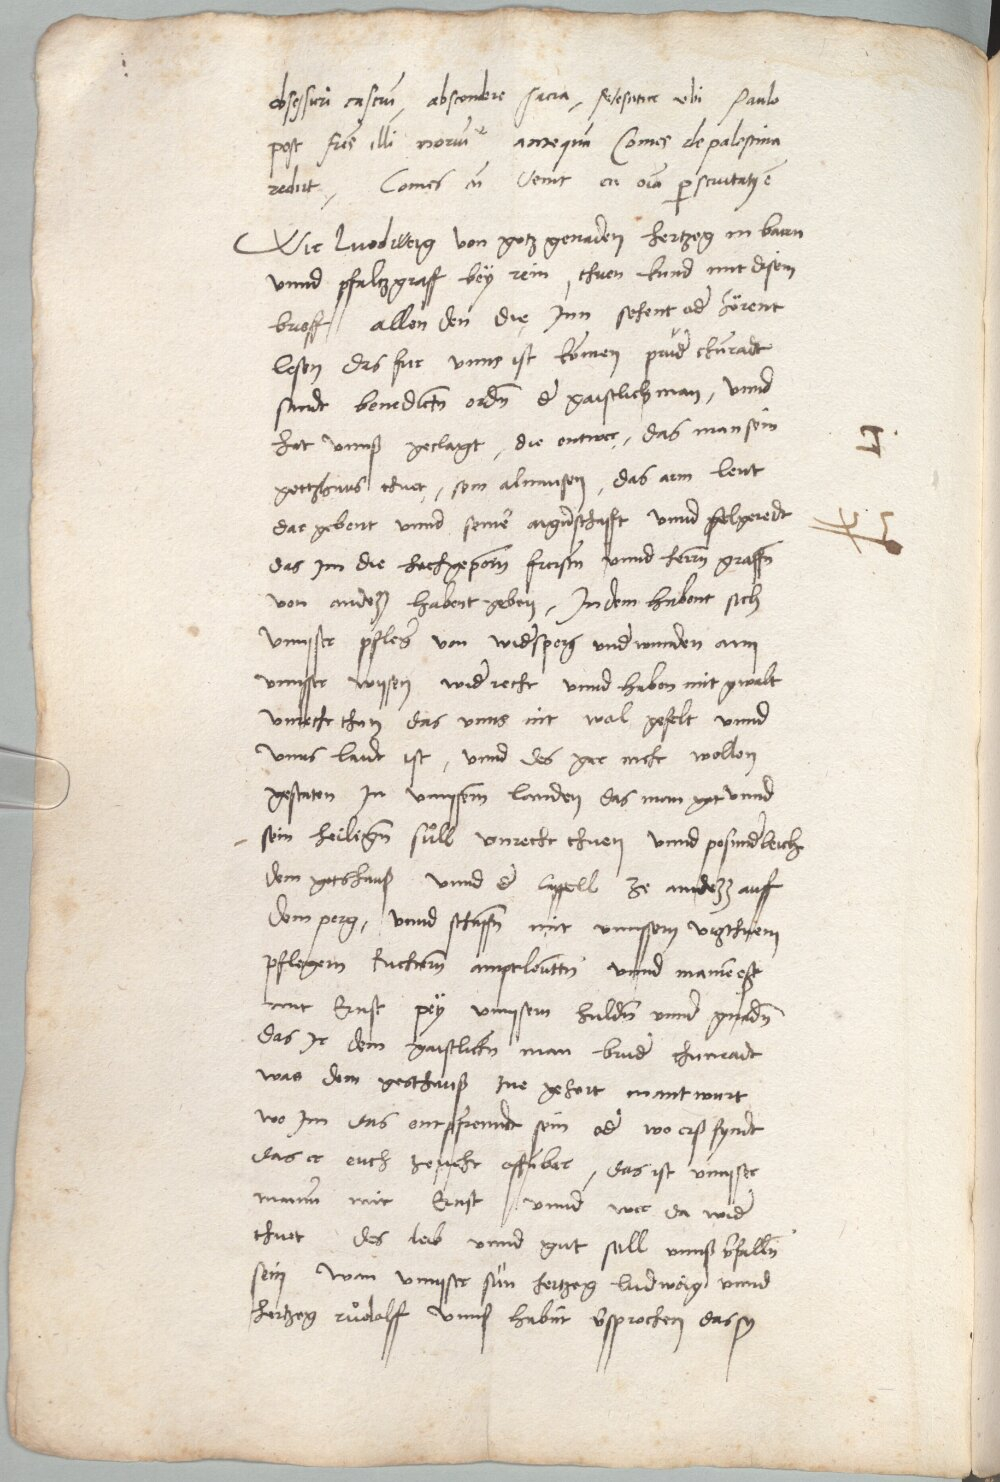 obsessuri castru, abscondere sacra, ubi Paulo
post frēs illi moriūr anteqm Comes de palestina
redit, Comes cū venit
Wir Ludweig von gotz genaden hertzog in bairn
vnnd pfaltzgraff beÿ rein, thuen kund mit disem
brieff allen den die Inn sehent oder hörent
lesen das fur vnns ist komen prūder chūradt
sandt benedictn ordn der gaistlich man, vnnd
hat vnnß geclagt, die entwer, das man sein
gottzhaus thuet, sein almusen, das arm leut
dar gebent vnnd seiner aigenschafft vnnd selgeredt
das Im die hochgeporn fursten vnnd herrn graffn
von andex habent geben, In dem habent sich
vnnsser pfleger von widersperg vnderwunden ann
vnnsser wissen wider recht vnnd haben mit gwalt
vnrecht than das vnns nit wol gefelt vnnd
vnns laidt ist, vnnd des gar nicht wollen
gestaten In vnnsern landen das man got vnnd
sein heiligen sůll vnrecht thuen vnnd posunderleich
dem gotshauß vnnd der cappell ze andexx auff
dem perg, vnnd schaffn mit vnnssern vigthuem
pflegern Richtern amptleuttn vnnd
mit Ernst peÿ vnnsern huldn vnnd gnadn
das Ir dem gaistlichn man bruder chunradt
was dem gothauß zue gehort inantwurt
wo Im das entpfrembt sein oder wo erß fyndt
das er euch zeucht offnbar, das ist vnnsser
mainu mit Ernst vnnd wer da wider
thuet des leib vnnd gut soll vnnß verfalln
sein wan vnnsser sün hertzog ludweig vnnd
hertzog růdolff vnnß habnt versprochen das sy